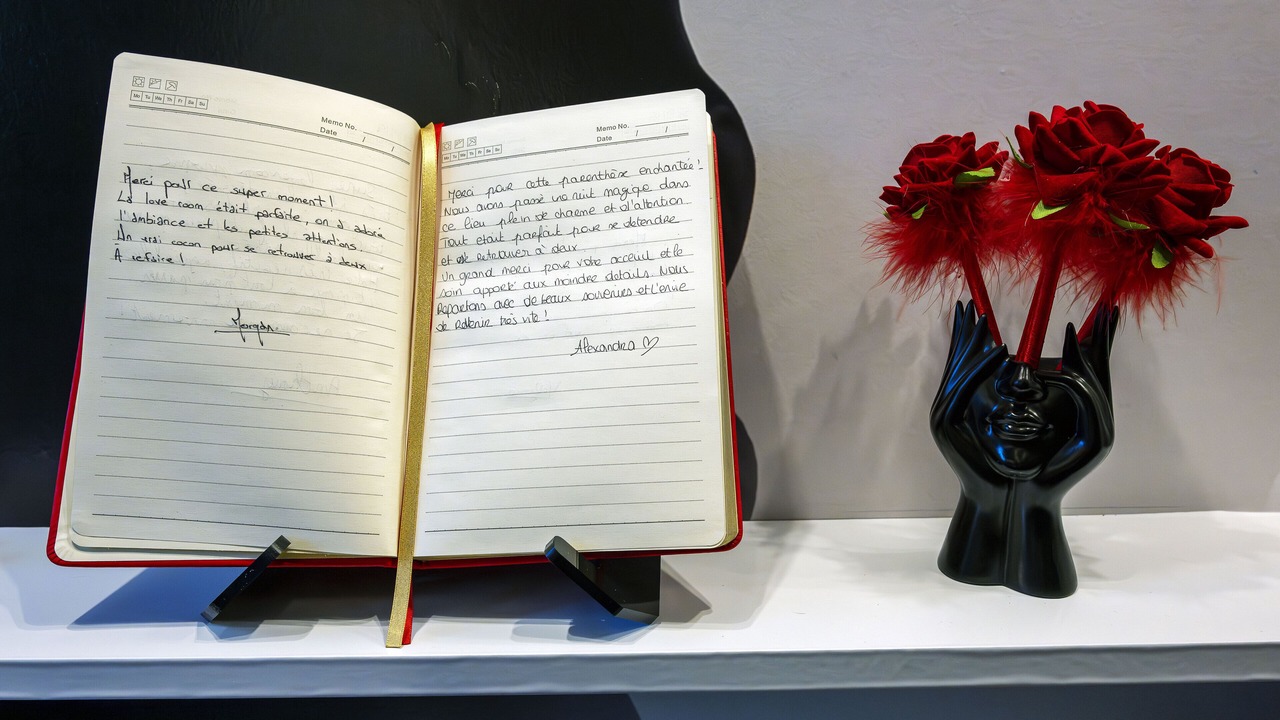 Mo Tu We Th Fr Sa Su
Memo No.
Date / /
Merci pour ce super moment !
La love room était parfaite, on a adoré
l'ambiance et les petites attentions.
Un vrai cocon pour se retrouver à deux
À refaire !
Morgan
Mo Tu We Th Fr Sa Su
Memo No.
Date / /
Merci pour cette parenthèse enchantée !
Nous avons passé une nuit magique dans
ce lieu plein de charme et d'attention.
Tout était parfait pour se détendre
et se retrouver à deux
Un grand merci pour votre acceuil et le
soin apporté aux moindre détails. Nous
Repartons avec de beaux souvenirs et l'envie
de Revenir très vite !
Alexandra ♡